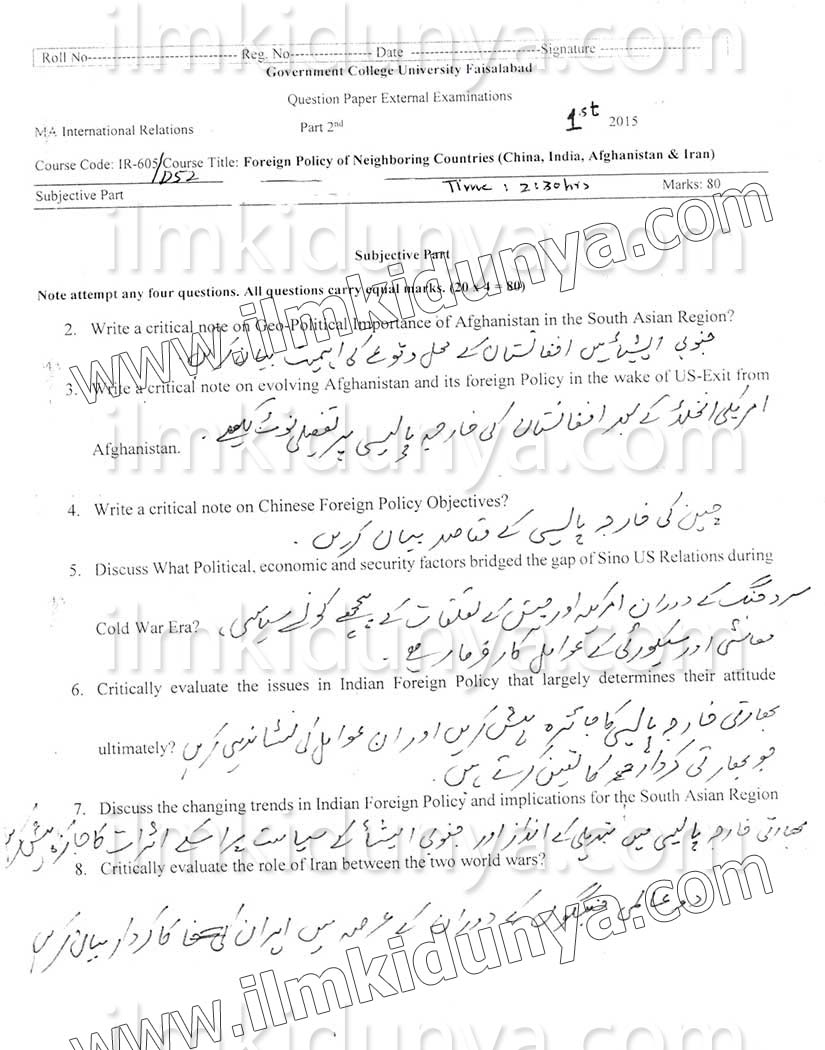 Roll No------------------------------- Reg. No----------------- Date ----------------------------Signature --------------------
Government College University Faisalabad
Question Paper External Examinations
MA International Relations Part 2nd 1st 2015
Course Code: IR-605/D52 Course Title: Foreign Policy of Neighboring Countries (China, India, Afghanistan & Iran)
Subjective Part Time : 2:30 hrs Marks: 80
Subjective Part
Note attempt any four questions. All questions carry equal marks. (20 x 4 = 80)
2. Write a critical note on Geo-Political Importance of Afghanistan in the South Asian Region?
جنوبی ایشیا میں افغانستان کے محل وقوع کی اہمیت بیان کریں
3. Write a critical note on evolving Afghanistan and its foreign Policy in the wake of US-Exit from
امریکی انخلاء کے بعد افغانستان کی خارجہ پالیسی پر تفصیلی نوٹ لکھیے۔
Afghanistan.
4. Write a critical note on Chinese Foreign Policy Objectives?
چین کی خارجہ پالیسی کے مقاصد بیان کریں۔
5. Discuss What Political, economic and security factors bridged the gap of Sino US Relations during
سرد جنگ کے دوران امریکہ اور چین کے تعلقات کے پیچھے کونسے سیاسی،
Cold War Era?
معاشی اور سیکورٹی کے عوامل کار فرما رہے۔
6. Critically evaluate the issues in Indian Foreign Policy that largely determines their attitude
بھارتی خارجہ پالیسی کا جائزہ پیش کریں اور ان عوامل کی نشاندہی کریں
ultimately?
جو بھارتی کردار کا تعین کرتے ہیں۔
7. Discuss the changing trends in Indian Foreign Policy and implications for the South Asian Region
بھارتی خارجہ پالیسی میں تبدیلی کے انداز اور جنوبی ایشیاء کے سیاست پر اسکے اثرات کا جائزہ پیش کریں
8. Critically evaluate the role of Iran between the two world wars?
دو عالمی جنگوں کے دوران کے عرصہ میں ایران کا کردار بیان کریں
www.ilmkidunya.com
www.ilmkidunya.com